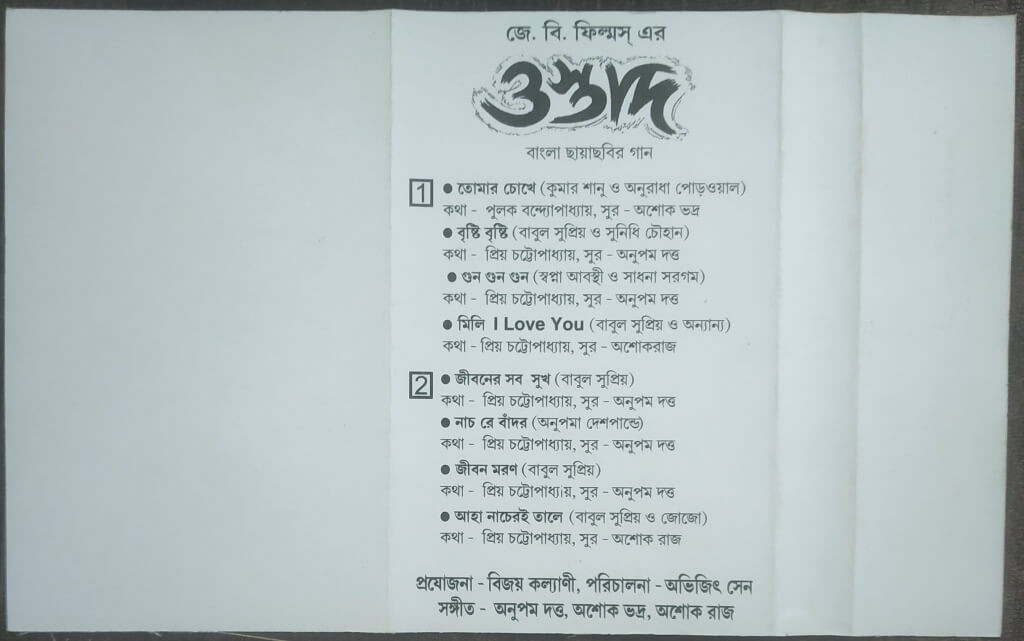 জে. বি. ফিল্মস্ এর
ওস্তাদ
বাংলা ছায়াছবির গান
1 ● তোমার চোখে (কুমার শানু ও অনুরাধা পোড়ওয়াল)
কথা - পুলক বন্দ্যোপাধ্যায়, সুর - অশোক ভদ্র
● বৃষ্টি বৃষ্টি (বাবুল সুপ্রিয় ও সুনিধি চৌহান)
কথা - প্রিয় চট্টোপাধ্যায়, সুর - অনুপম দত্ত
● গুন গুন গুন (স্বপ্না আবস্থী ও সাধনা সরগম)
কথা - প্রিয় চট্টোপাধ্যায়, সুর - অনুপম দত্ত
● মিলি I Love You (বাবুল সুপ্রিয় ও অন্যান্য)
কথা - প্রিয় চট্টোপাধ্যায়, সুর - অশোকরাজ
2 ● জীবনের সব সুখ (বাবুল সুপ্রিয়)
কথা - প্রিয় চট্টোপাধ্যায়, সুর - অনুপম দত্ত
● নাচ রে বাঁদর (অনুপমা দেশপান্ডে)
কথা - প্রিয় চট্টোপাধ্যায়, সুর - অনুপম দত্ত
● জীবন মরণ (বাবুল সুপ্রিয়)
কথা - প্রিয় চট্টোপাধ্যায়, সুর - অনুপম দত্ত
● আহা নাচেরই তালে (বাবুল সুপ্রিয় ও জোজো)
কথা - প্রিয় চট্টোপাধ্যায়, সুর - অশোক রাজ
প্রযোজনা - বিজয় কল্যাণী, পরিচালনা - অভিজিৎ সেন
সঙ্গীত - অনুপম দত্ত, অশোক ভদ্র, অশোক রাজ